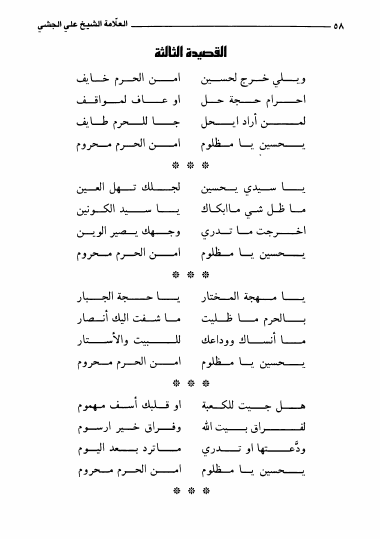 ٥٨ العلّامة الشيخ علي الجشي
القصيدة الثالثة
ويـلـي خرج لحسـين امـن الحرم خـايف
احـرام حـجـة حـل او عـاف لمـواقـف
لمـن أراد ايـحل جـا للـحرم طـايف
يـحسين يـا مـظلوم امن الحرم محروم
❊ ❊ ❊
يـا سـيدي يـحسين لجـلك تـهل العين
مـا ظـل شي ماابكاك يـا سـيد الكونين
اخـرجت مـا تـدري وجـهك يـصير الوين
يـحسين يـا مـظلوم امـن الحرم محروم
❊ ❊ ❊
يـا مـهجة المـختار يـا حـجة الجـبار
بـالحرم مـا ظـليت مـا شـفت اليك أنصار
مـا أنسـاك ووداعك للـبيت والأستار
يـحسين يـا مـظلوم امـن الحرم محروم
❊ ❊ ❊
هـل جـيت للكعبة او قـلبك أسـف مـهموم
لفـراق بـيت الله وفـراق خـير ارسـوم
ودَّعـتها او تـدري مـاترد بـعد اليوم
يـحسين يـا مـظلوم امـن الحرم محروم
❊ ❊ ❊